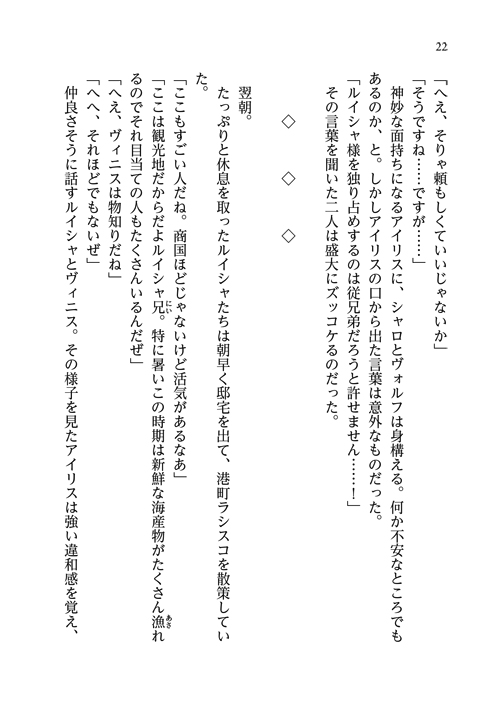 22
「へえ、そりゃ頼もしくていいじゃないか」
「そうですね……ですが……」
神妙な面持ちになるアイリスに、シャロとヴォルフは身構える。何か不安なところでも
あるのか、と。しかしアイリスの口から出た言葉は意外なものだった。
「ルイシャ様を独り占めするのは従兄弟だろうと許せません……！」
その言葉を聞いた二人は盛大にズッコケるのだった。
◇　◇　◇
翌朝。
たっぷりと休息を取ったルイシャたちは朝早く邸宅を出て、港町ラシスコを散策してい
た。
「ここもすごい人だね。商国ほどじゃないけど活気があるなあ」
「ここは観光地だからだよルイシャ兄。特に暑いこの時期は新鮮な海産物がたくさん漁れ
にい
あさ
るのでそれ目当ての人もたくさんいるんだぜ」
「へえ、ヴィニスは物知りだね」
「へへ、それほどでもないぜ」
仲良さそうに話すルイシャとヴィニス。その様子を見たアイリスは強い違和感を覚え、